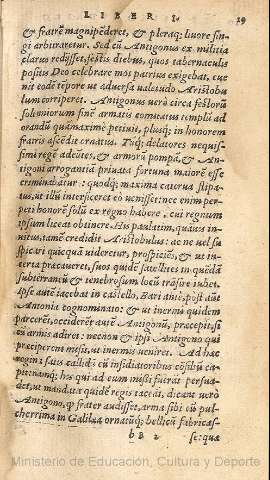 LIBER I.
19
& fratrē magnipēderet, & pleraq; liuore fin-
gi arbitraretur. Sed cū Antigonus ex militia
clarus redijsset, festis diebus, quos tabernaculis
positis Deo celebrare mos patrius exigebat, euenit
eodē tēpore ut aduersa ualetudo Aristobu
lum corriperet. Antigonus uerò circa festorū
solenniorum fine armatis comitatus templū ad
orandū quàmaximè petiuit, plusq; in honorem
fratris accessit ornatus. Tūq; delatores nequis-
simi rege adeūtes, & armorū pompā, & An-
tigoni arrogantiā priuata fortuna maiorē esse
criminabātur: quodq; maxima caterua stipa-
tus, ut illū interficeret eò uenisset: nec enim per-
peti honorē solū ex regno habere, cui regnum
ipsum liceat obtinere. His paulatim, quāuis in-
uitus, tamē credidit Aristobulus: ac ne uel su-
spicari quicquā uideretur, prospiciēs, & ut in-
certa præcaueret, suos quidē satellites in quēdā
subterraneū & tenebrosum locū trāsire iubet.
Ipse autē iacebat in castello, Bari antè, pòst autē
Antonia cognominato: & ut inermi quidem
parcerēt, occiderēt autē Antigonū, præcepit, si
cū armis adiret: necnon & ipsi Antigono qui
præciperent misit, ut inermis ueniret. Ad hæc
regina satis callidū cū insidiatoribus cōsiliū ca-
pit: nanq; his qui ad eum missi fuerāt persua-
det, ut mandata quidē regis taceāt, dicant uerò
Antigono, q̃ frater audisset, arma sibi eū pul-
cherrima in Galilæa ornatūq; bellicū fabricas-
b B 2
se: qua
Ministerio de Educación, Cultura y Deporte